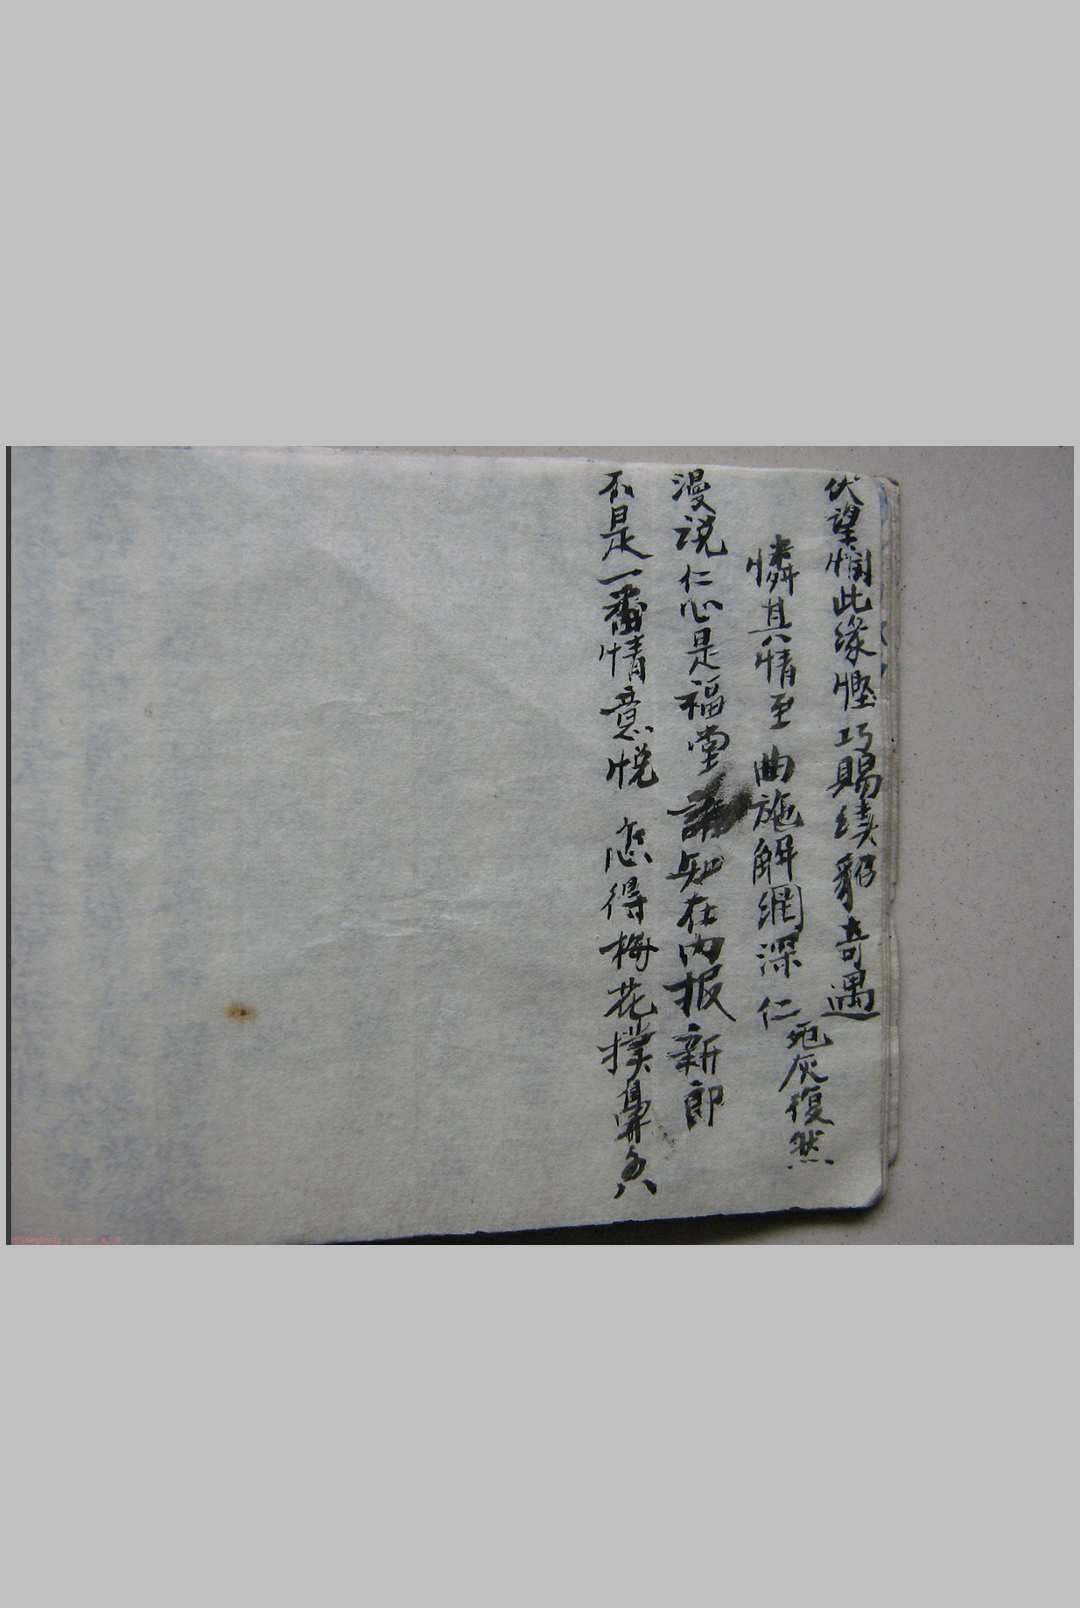 伏望悯此缘慳巧賜续貂奇遇
憐其情至曲施解網深仁
死灰復然
漫说仁心是福堂 知在内报新郎
不是一番情意悦 恋得梅花撲鼻香